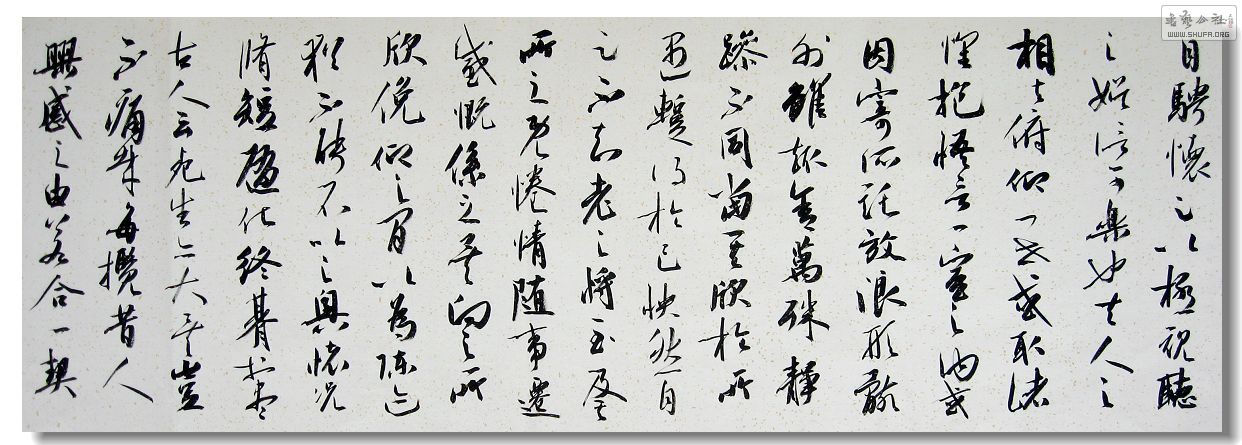 目騁懷足以極視聽
之娛信可樂也夫人之
相與俯仰一世或取諸
懷抱悟言一室之內或
因寄所託放浪形骸
外雖趣舍萬殊靜
躁不同當其欣於所
遇蹔得於己怏然自
足不知老之將至及其
所之既惓情隨事遷
感慨係之矣向之所
欣俛仰之間以為陳迹
猶不能不以之興懷況
脩短隨化終朞於盡
古人云死生亦大矣豈
不痛哉每攬昔人
興感之由若合一契
書藝公社
WWW.SHUFA.ORG